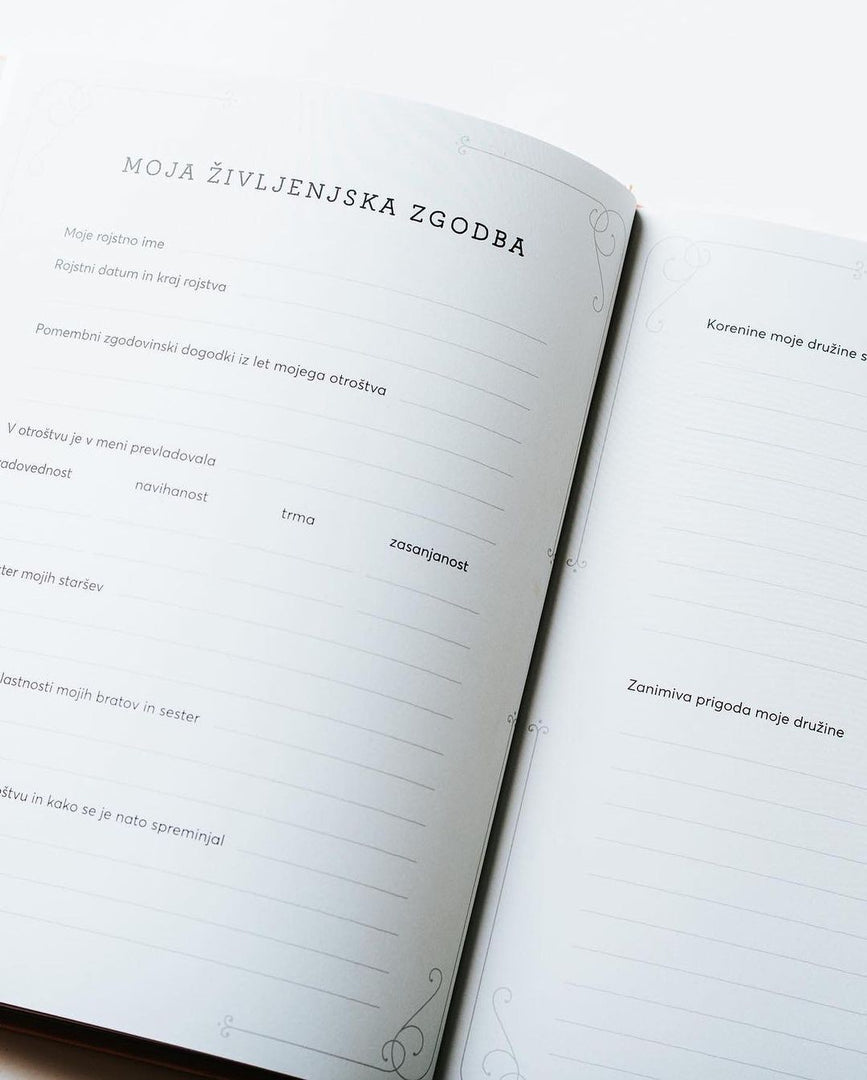 MOJA ŽIVLJENJSKA ZGODBA
Moje rojstno ime
Rojstni datum in kraj rojstva
Pomembni zgodovinski dogodki iz let mojega otroštva
V otroštvu je v meni prevladovala
navihanost
trma
zasanjanost
mojih staršev
mojih bratov in sester
in kako se je nato spreminjal
Korenine moje družine
Zanimiva prigoda moje družine